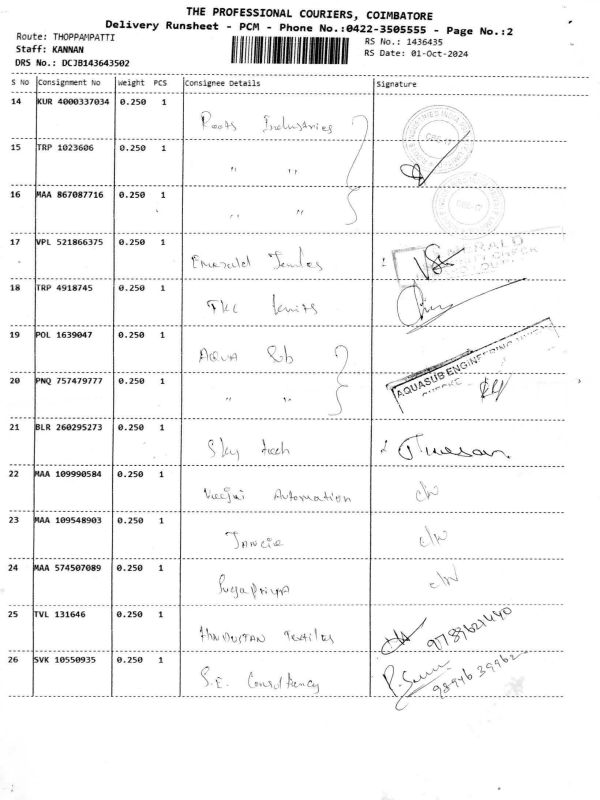 THE PROFESSIONAL COURIERS, COIMBATORE
Delivery Runsheet - PCM - Phone No.:0422-3505555 - Page No.:2
Route: THOPPAMPATTI
RS No.: 1436435
Staff: KANNAN
RS Date: 01-Oct-2024
DRS No.: DCJB143643502
S No Consignment No Weight PCS Consignee Details Signature
14 KUR 4000337034 0.250 1 Roots Industries
15 TRP 1023606 0.250 1 " "
16 MAA 867087716 0.250 1 " "
17 VPL 521866375 0.250 1 Emerald
18 TRP 4918745 0.250 1 TKC knits
19 POL 1639047 0.250 1 AQUA Sub
20 PNQ 757479777 0.250 1 " " AQUASUB ENGINEERING
21 BLR 260295273 0.250 1 Sky tech
22 MAA 109990584 0.250 1 Automation c/w
23 MAA 109548903 0.250 1 c/w
24 MAA 574507089 0.250 1 c/w
25 TVL 131646 0.250 1 HINDUSTAN Textiles
26 SVK 10550935 0.250 1 S.E. Consultancy